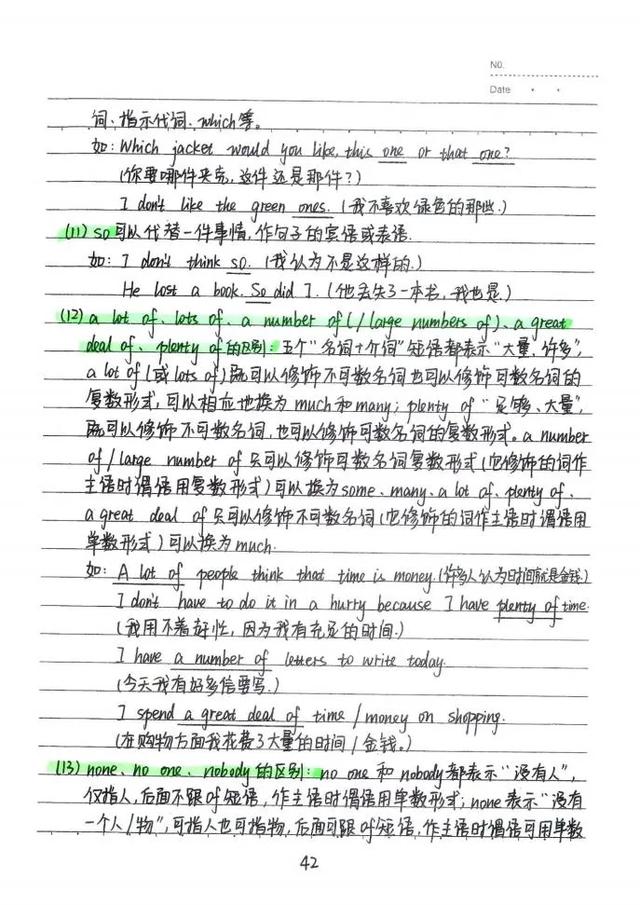 NO.
Date
词、指示代词、which等。
如: Which jacket would you like, this one or that one?
(你要哪件夹克,这件还是那件?)
I don't like the green ones. (我不喜欢绿色的那些.)
(11) so可以代替一件事情,作句子的宾语或表语.
如: I don't think so. (我认为不是这样的.)
He lost a book. So did I. (他丢失了一本书,我也是.)
(12) a lot of、lots of、a number of (/ large numbers of)、a great
deal of、plenty of的区别: 五个"名词+介词"短语都表示"大量,许多",
a lot of (或lots of)既可以修饰不可数名词也可以修饰可数名词的
复数形式,可以相应地换为much和many; plenty of "足够、大量",
既可以修饰不可数名词,也可以修饰可数名词的复数形式。a number
of / large number of只可以修饰可数名词复数形式(它修饰的词作
主语时谓语用复数形式)可以换为some、many、a lot of、plenty of.
a great deal of只可以修饰不可数名词(它修饰的词作主语时谓语用
单数形式)可以换为much.
如: A lot of people think that time is money. (许多人认为时间就是金钱.)
I don't have to do it in a hurry because I have plenty of time.
(我用不着好忙,因为我有充足的时间.)
I have a number of letters to write today.
(今天我有好多信要写.)
I spend a great deal of time / money on shopping.
(在购物方面我花费了大量的时间/金钱。)
(13) none、no one、nobody的区别: no one和nobody都表示"没有人",
仅指人,后面不跟of短语,作主语时谓语用单数形式; none表示"没有
一个人/物",可指人也可指物,后面可跟of短语,作主语时谓语可用单数
42